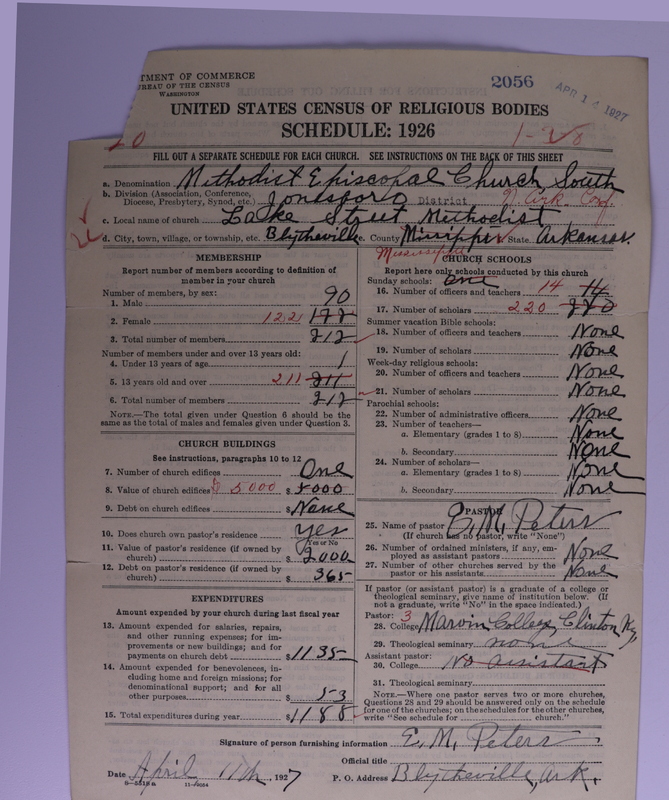 TMENT OF COMMERCE
REAU OF THE CENSUS
WASHINGTON
2056
APR 14 1927
UNITED STATES CENSUS OF RELIGIOUS BODIES
SCHEDULE: 1926
20
FILL OUT A SEPARATE SCHEDULE FOR EACH CHURCH. SEE INSTRUCTIONS ON THE BACK OF THIS SHEET
a. Denomination Methodist Episcopal Church, South
b. Division (Association, Conference, Diocese, Presbytery, Synod, etc.) Jonesboro District N. Ark. Conf.
c. Local name of church Lake Street Methodist
d. City, town, village, or township, etc. Blytheville County Mississippi State Arkansas.
Mississippi
MEMBERSHIP
Report number of members according to definition of
member in your church
Number of members, by sex:
1. Male 90
2. Female 122 122
3. Total number of members 212
Number of members under and over 13 years old:
4. Under 13 years of age 1
5. 13 years old and over 211 211
6. Total number of members 212
NOTE.—The total given under Question 6 should be the
same as the total of males and females given under Question 3.
CHURCH BUILDINGS
See instructions, paragraphs 10 to 12
7. Number of church edifices One
8. Value of church edifices $ 5000 $ 5000
9. Debt on church edifices $ None
10. Does church own pastor's residence Yes
Yes or No
11. Value of pastor's residence (if owned by
church) $ 2000
12. Debt on pastor's residence (if owned by
church) $ 365
EXPENDITURES
Amount expended by your church during last fiscal year
13. Amount expended for salaries, repairs,
and other running expenses; for im-
provements or new buildings; and for
payments on church debt $ 1135
14. Amount expended for benevolences, in-
cluding home and foreign missions; for
denominational support; and for all
other purposes $ 53
15. Total expenditures during year $ 1188
CHURCH SCHOOLS
Report here only schools conducted by this church
Sunday schools: One
16. Number of officers and teachers 14 14
17. Number of scholars 220 220
Summer vacation Bible schools:
18. Number of officers and teachers None
19. Number of scholars None
Week-day religious schools:
20. Number of officers and teachers None
21. Number of scholars None
Parochial schools:
22. Number of administrative officers None
23. Number of teachers—
a. Elementary (grades 1 to 8) None
b. Secondary None
24. Number of scholars—
a. Elementary (grades 1 to 8) None
b. Secondary None
PASTOR
25. Name of pastor E. M. Peters
(If church has no pastor, write "None")
26. Number of ordained ministers, if any, em-
ployed as assistant pastors None
27. Number of other churches served by the
pastor or his assistants None
If pastor (or assistant pastor) is a graduate of a college or
theological seminary, give name of institution below. (If
not a graduate, write "No" in the space indicated.)
Pastor: 3
28. College Marvin College, Clinton Ky,
29. Theological seminary none
Assistant pastor:
30. College No assistant
31. Theological seminary
NOTE.—Where one pastor serves two or more churches,
Questions 28 and 29 should be answered only on the schedule
for one of the churches; on the schedules for the other churches,
write "See schedule for church."
Signature of person furnishing information E. M. Peters
Official title
Date April 11th, 1927 P. O. Address Blytheville, Ark.
11—9034